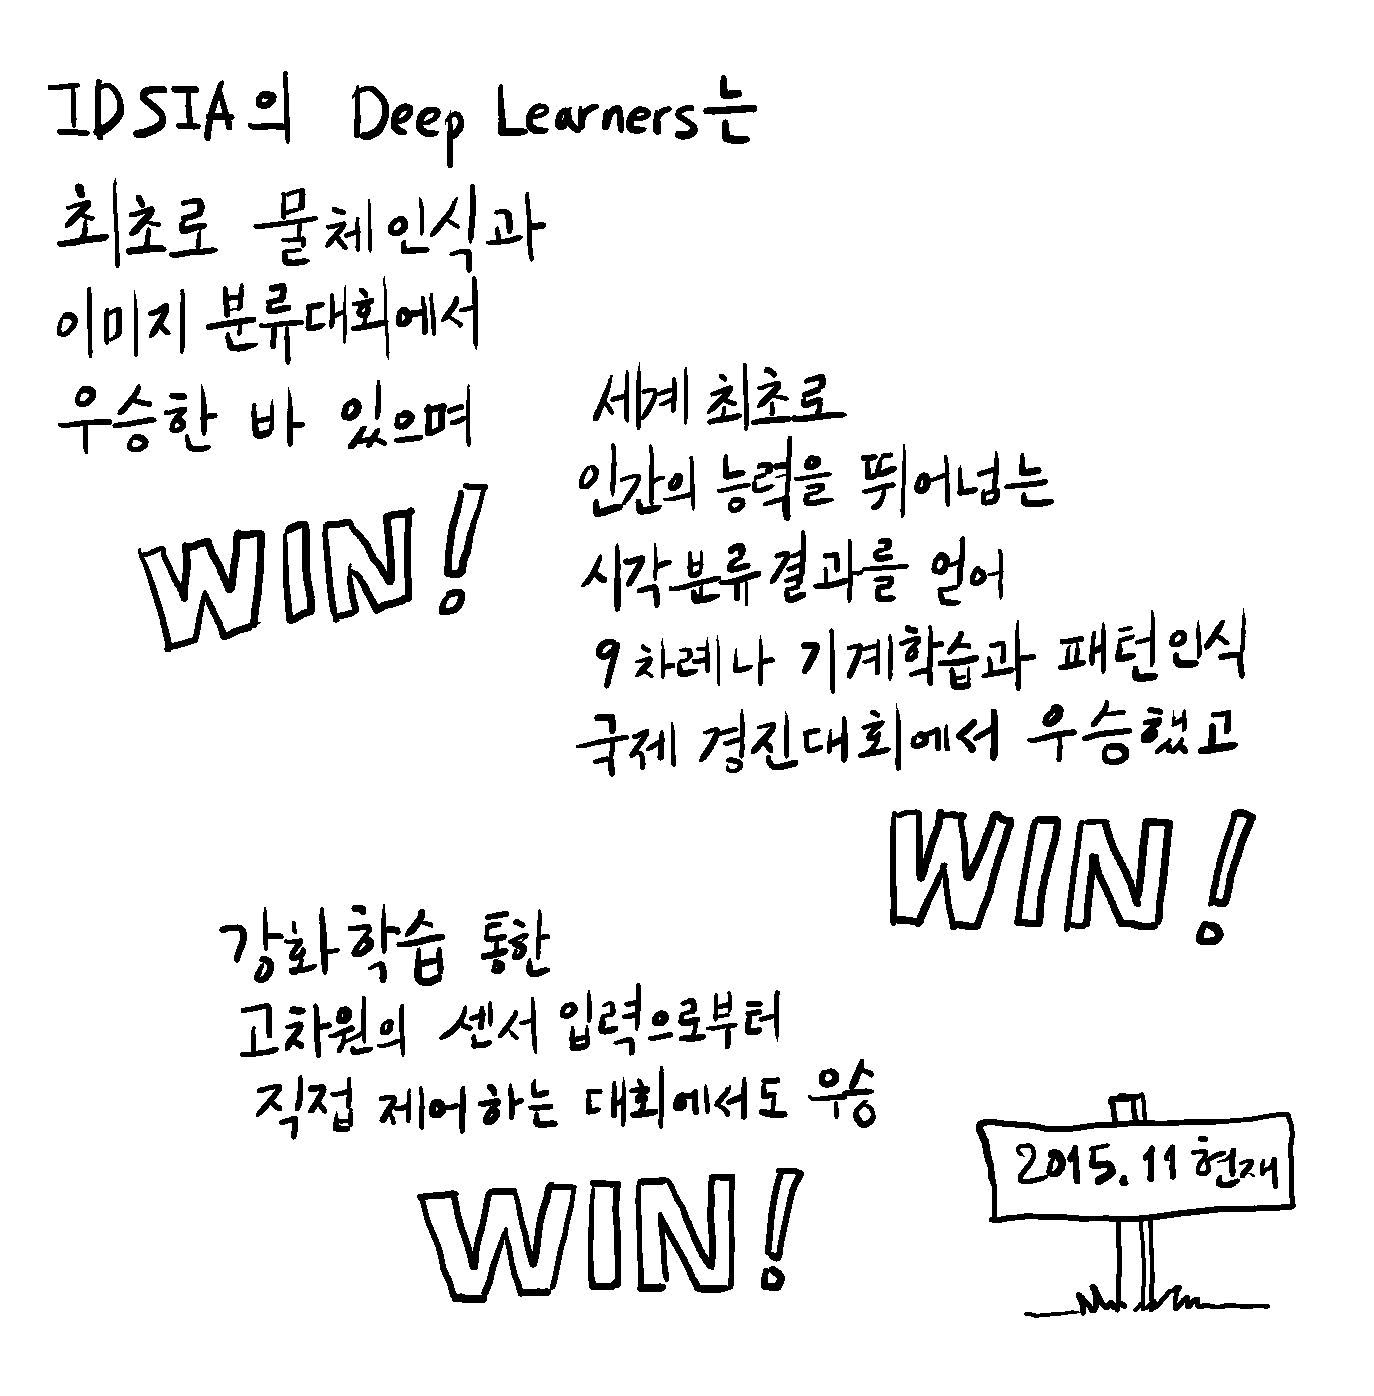 IDSIA의 Deep Learners는
최초로 물체인식과
이미지 분류대회에서
우승한 바 있으며
WIN!
세계 최초로
인간의 능력을 뛰어넘는
시각분류결과를 얻어
9차례나 기계학습과 패턴인식
국제 경진대회에서 우승했고
WIN!
강화학습 통한
고차원의 센서 입력으로부터
직접 제어하는 대회에서도 우승
WIN!
2015.11 현재